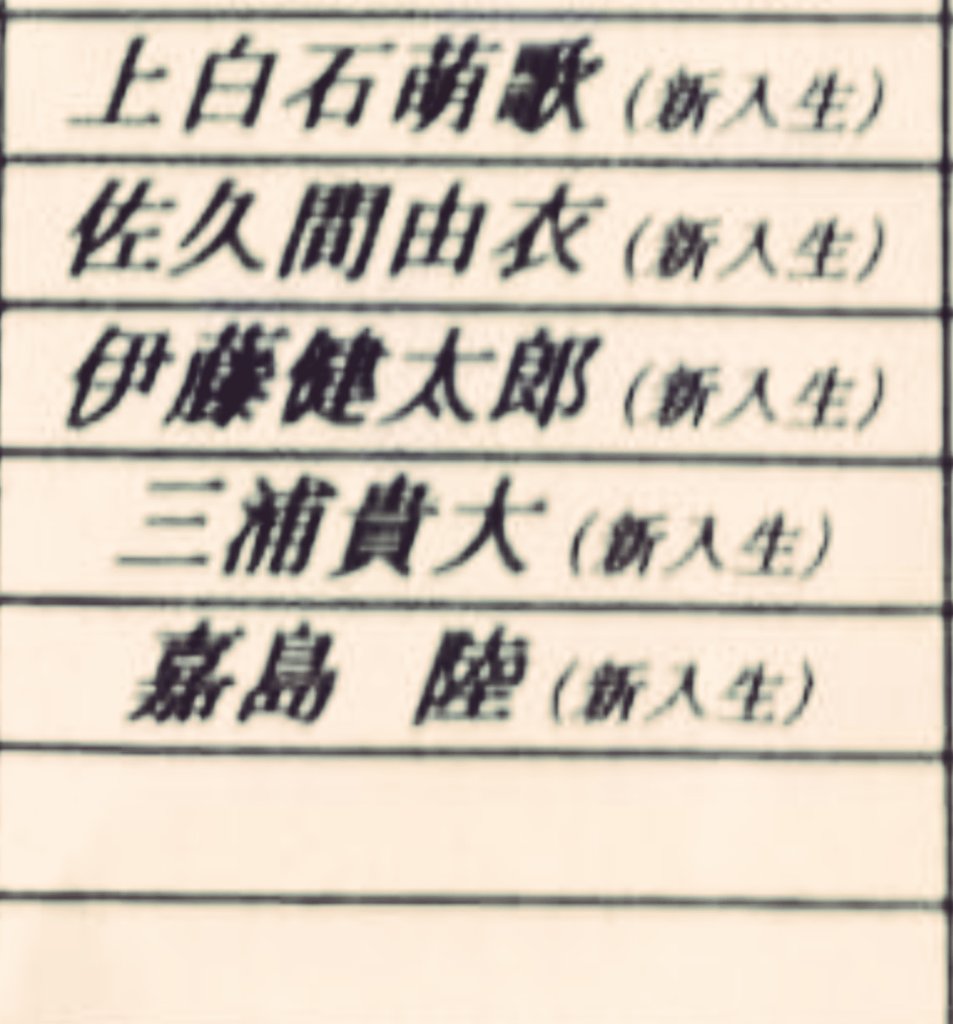 上白石萌歌（新入生）
佐久間由衣（新入生）
伊藤健太郎（新入生）
三浦貴大（新入生）
嘉島　陸（新入生）